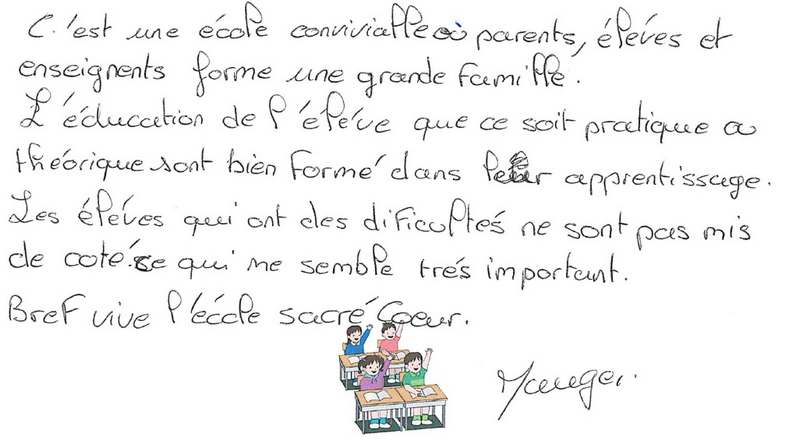 C.'est une école convivialle où parents, éléves et
enseignents forme une grande famille.
L'éducation de l'éléve que ce soit pratique ou
théorique sont bien formé dans leur apprentissage.
Les éléves qui ont des dificultés ne sont pas mis
de coté ce qui me semble trés important.
Bref vive l'école sacré Coeur.